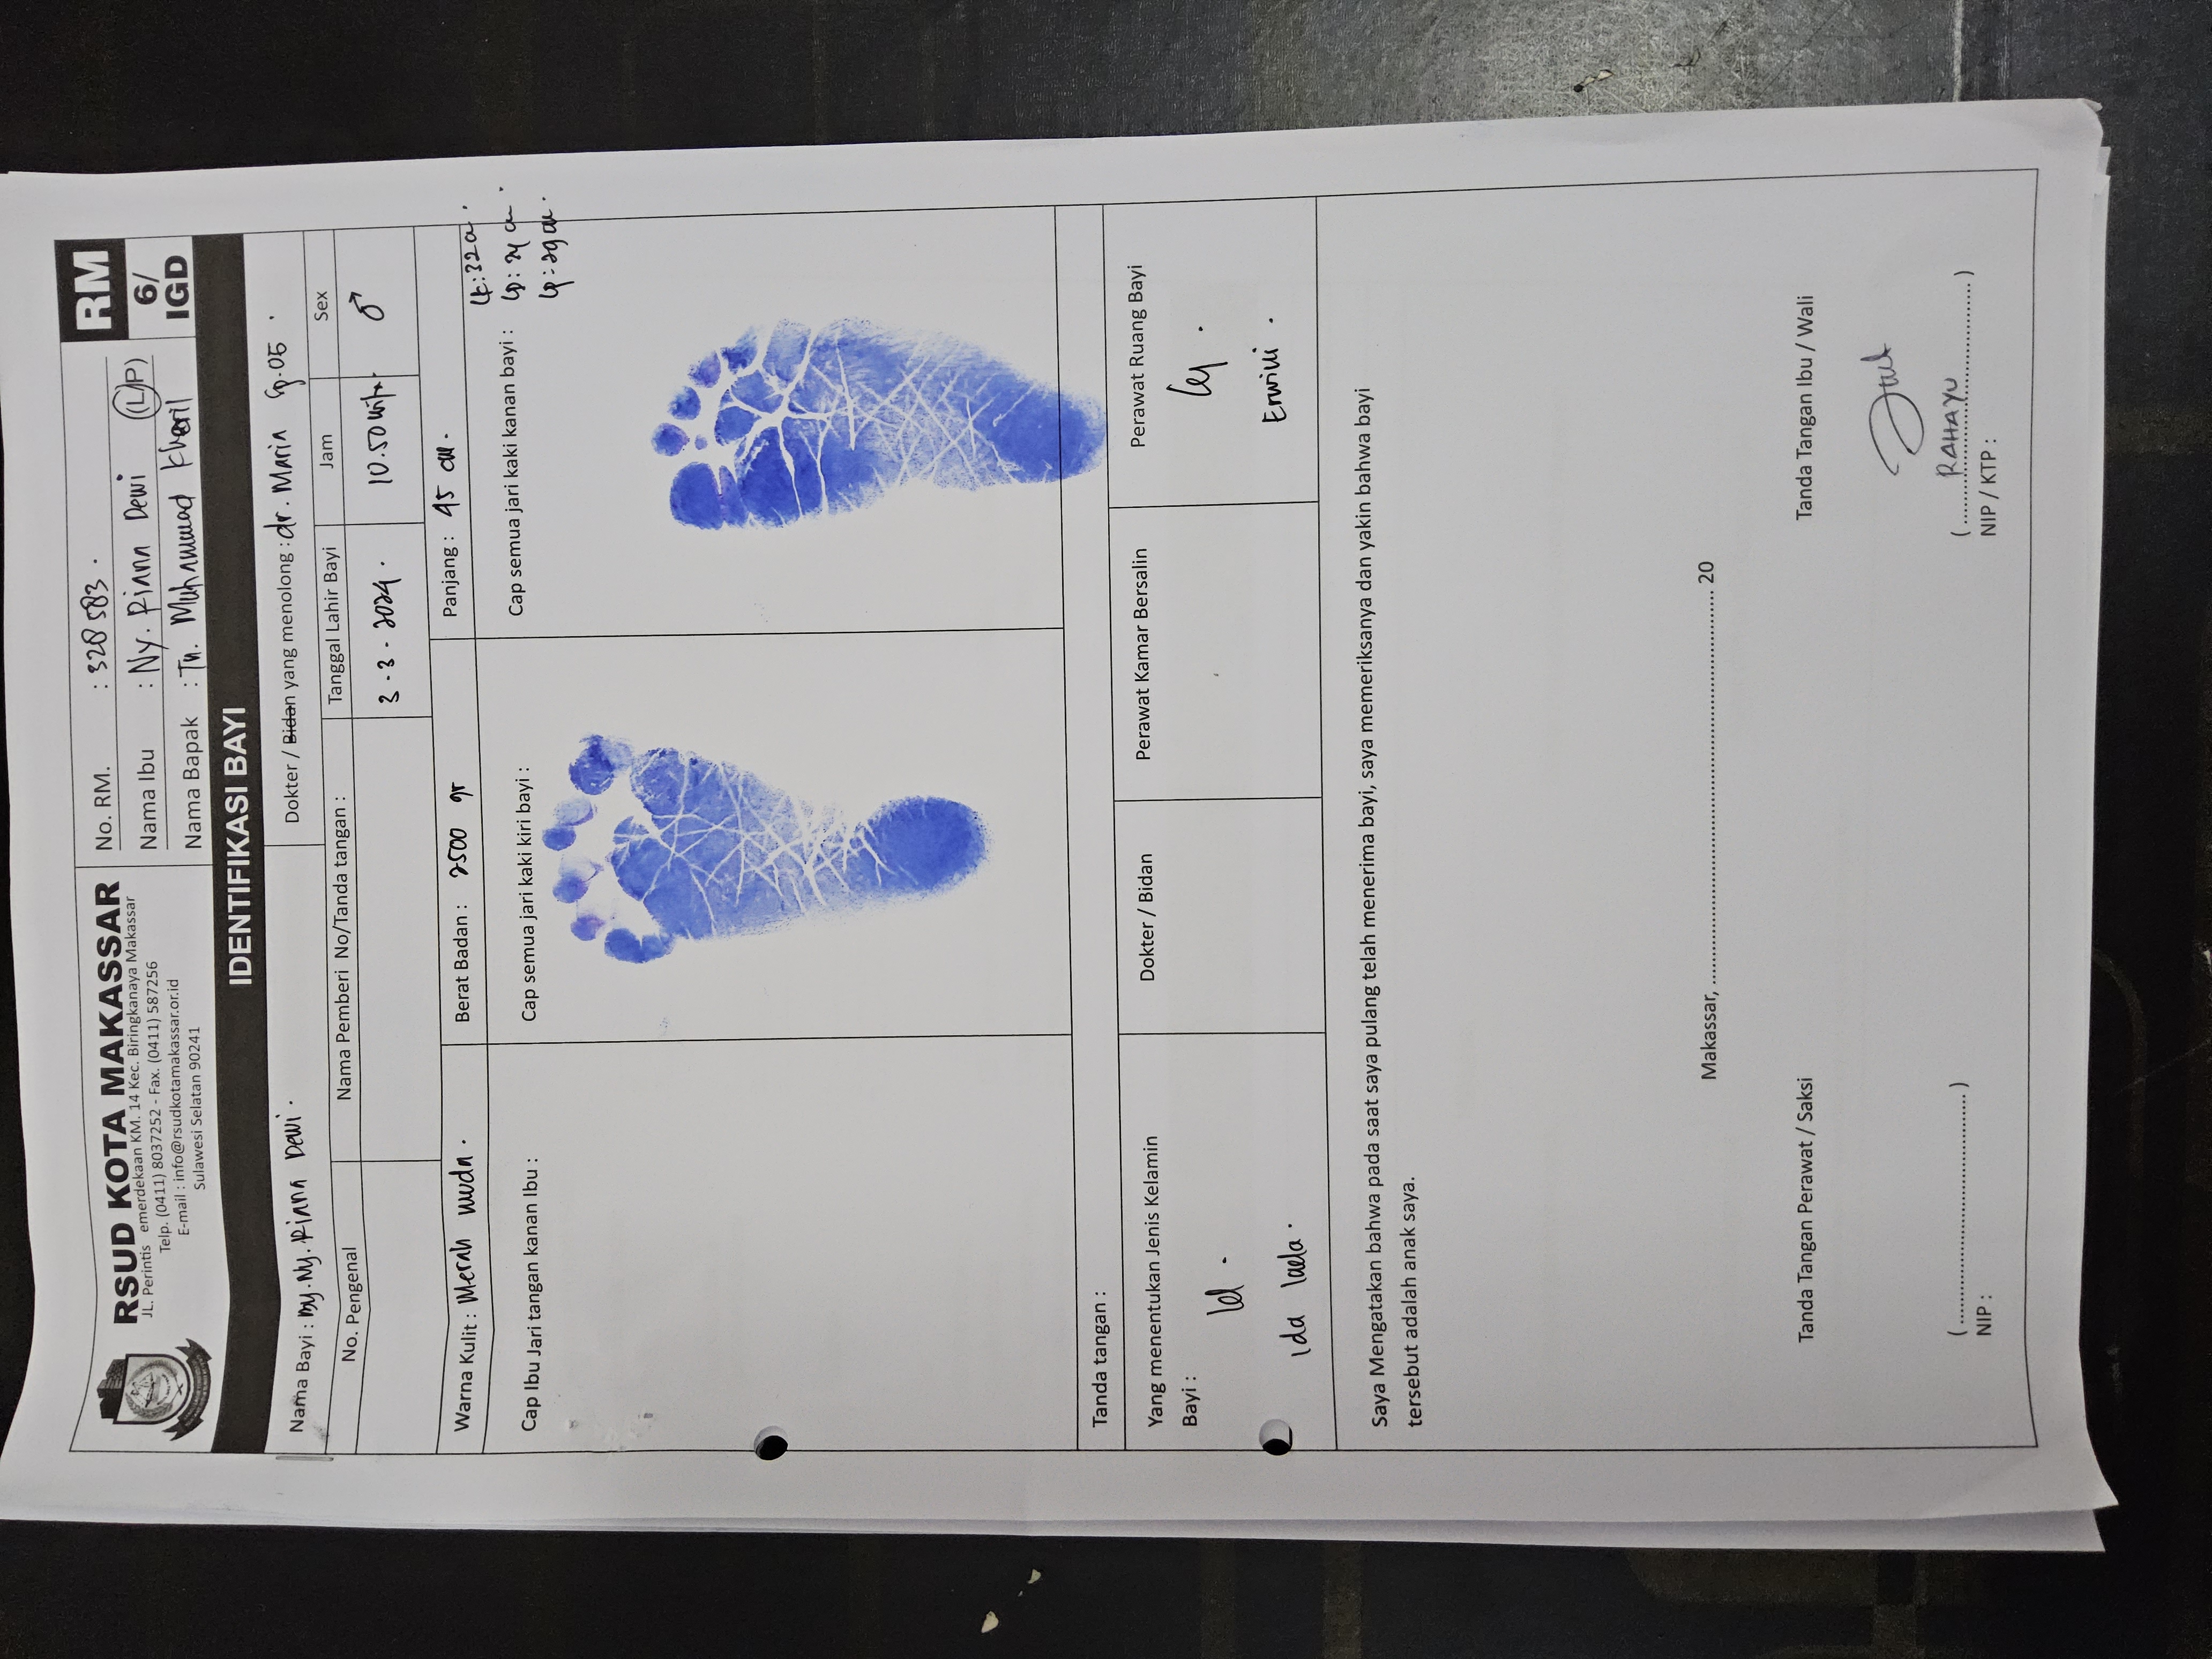 RSUD KOTA MAKASSAR
JL. Perintis emerdekaan KM. 14 Kec. Biringkanaya Makassar
Telp. (0411) 8037252 - Fax. (0411) 587256
E-mail : info@rsudkotamakassar.or.id
Sulawesi Selatan 90241
No. RM. : 328583 .
Nama Ibu : Ny. Riana Dewi (L/P)
Nama Bapak : Tn. Muhammad Khoril
RM
6/
IGD
IDENTIFIKASI BAYI
Nama Bayi : By. Ny. Riana Dewi .
Dokter / Bidan yang menolong : dr. Maria Sp.OG .
No. Pengenal
Nama Pemberi No/Tanda tangan :
Tanggal Lahir Bayi
Jam
Sex
3 - 3 - 2024 .
10.50 wita
♂
Warna Kulit : Merah muda .
Berat Badan : 2500 gr
Panjang : 45 cm .
LK : 32 cm .
Cap Ibu Jari tangan kanan Ibu :
Cap semua jari kaki kiri bayi :
Cap semua jari kaki kanan bayi :
LP : 29 cm .
Tanda tangan :
Yang menentukan Jenis Kelamin
Bayi :
Ida laela .
Dokter / Bidan
Perawat Kamar Bersalin
Perawat Ruang Bayi
Erwini .
Saya Mengatakan bahwa pada saat saya pulang telah menerima bayi, saya memeriksanya dan yakin bahwa bayi
tersebut adalah anak saya.
Makassar, ........................................................................ 20
Tanda Tangan Perawat / Saksi
Tanda Tangan Ibu / Wali
( .......................................... )
NIP :
( RAHAYU )
NIP / KTP :